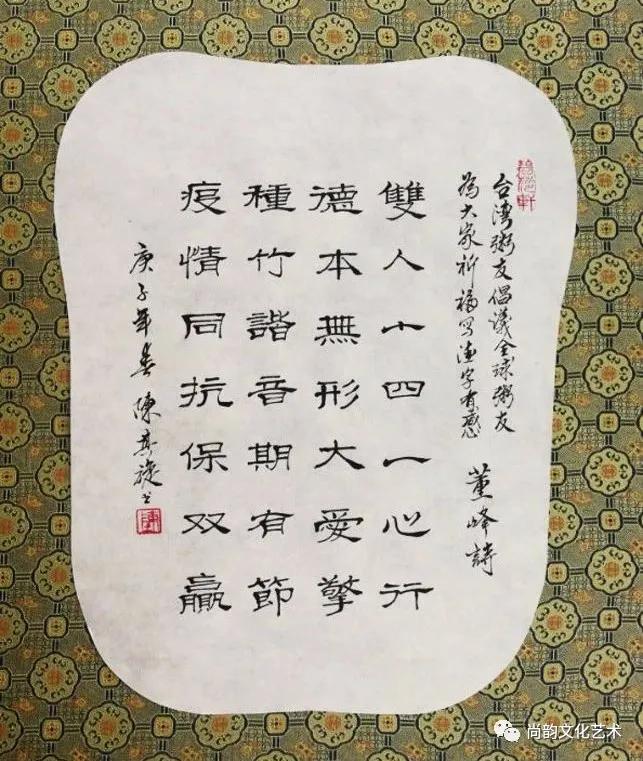 台湾粥友倡議全球粥友
為大家祈福写德字有感 董峰詩
雙人十四一心行
德本無形大愛擎
種竹諧音期有節
疫情同抗保双贏
庚子年春 陳其旋书
尚韵文化艺术